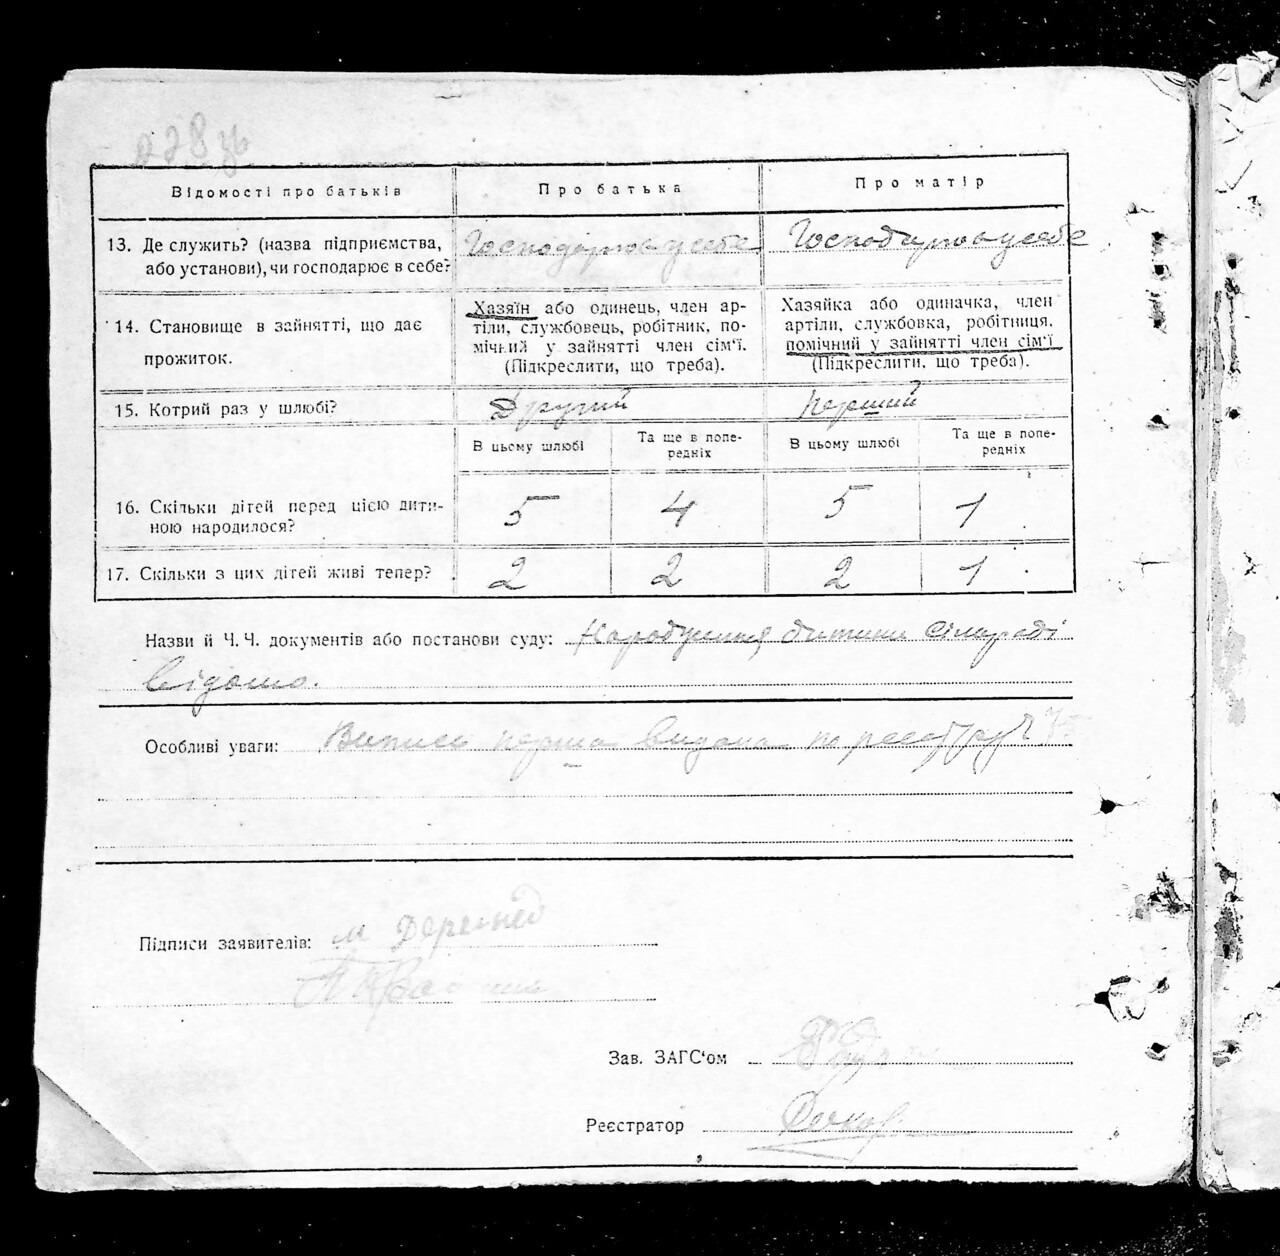 Відомості про батьків
Про батька
Про матір
13. Де служить? (назва підприємства,
або установи), чи господарює в себе?
Господарював у себе
Господарював у себе
14. Становище в зайнятті, що дає
прожиток.
Хазяїн або одинець, член ар-
тілі, службовець, робітник, по-
мічний у зайнятті член сім'ї.
(Підкреслити, що треба).
Хазяйка або одиначка, член
артіли, службовка, робітниця.
помічний у зайнятті член сім'ї
(Підкреслити, що треба).
15. Котрий раз у шлюбі?
Другий
Перший
В цьому шлюбі
Та ще в попе-
редніх
В цьому шлюбі
Та ще в попе-
редніх
16. Скільки дітей перед цією дити-
ною народилося?
5
4
5
1
17. Скільки з цих дітей живі тепер?
2
2
2
1
Назви й Ч.Ч. документів або постанови суду: Народження дитини сільраді
відомо.
Особливі уваги: Випись перша видана по реєстру
Підписи заявителів: М
Зав. ЗАГС'ом
Реєстратор